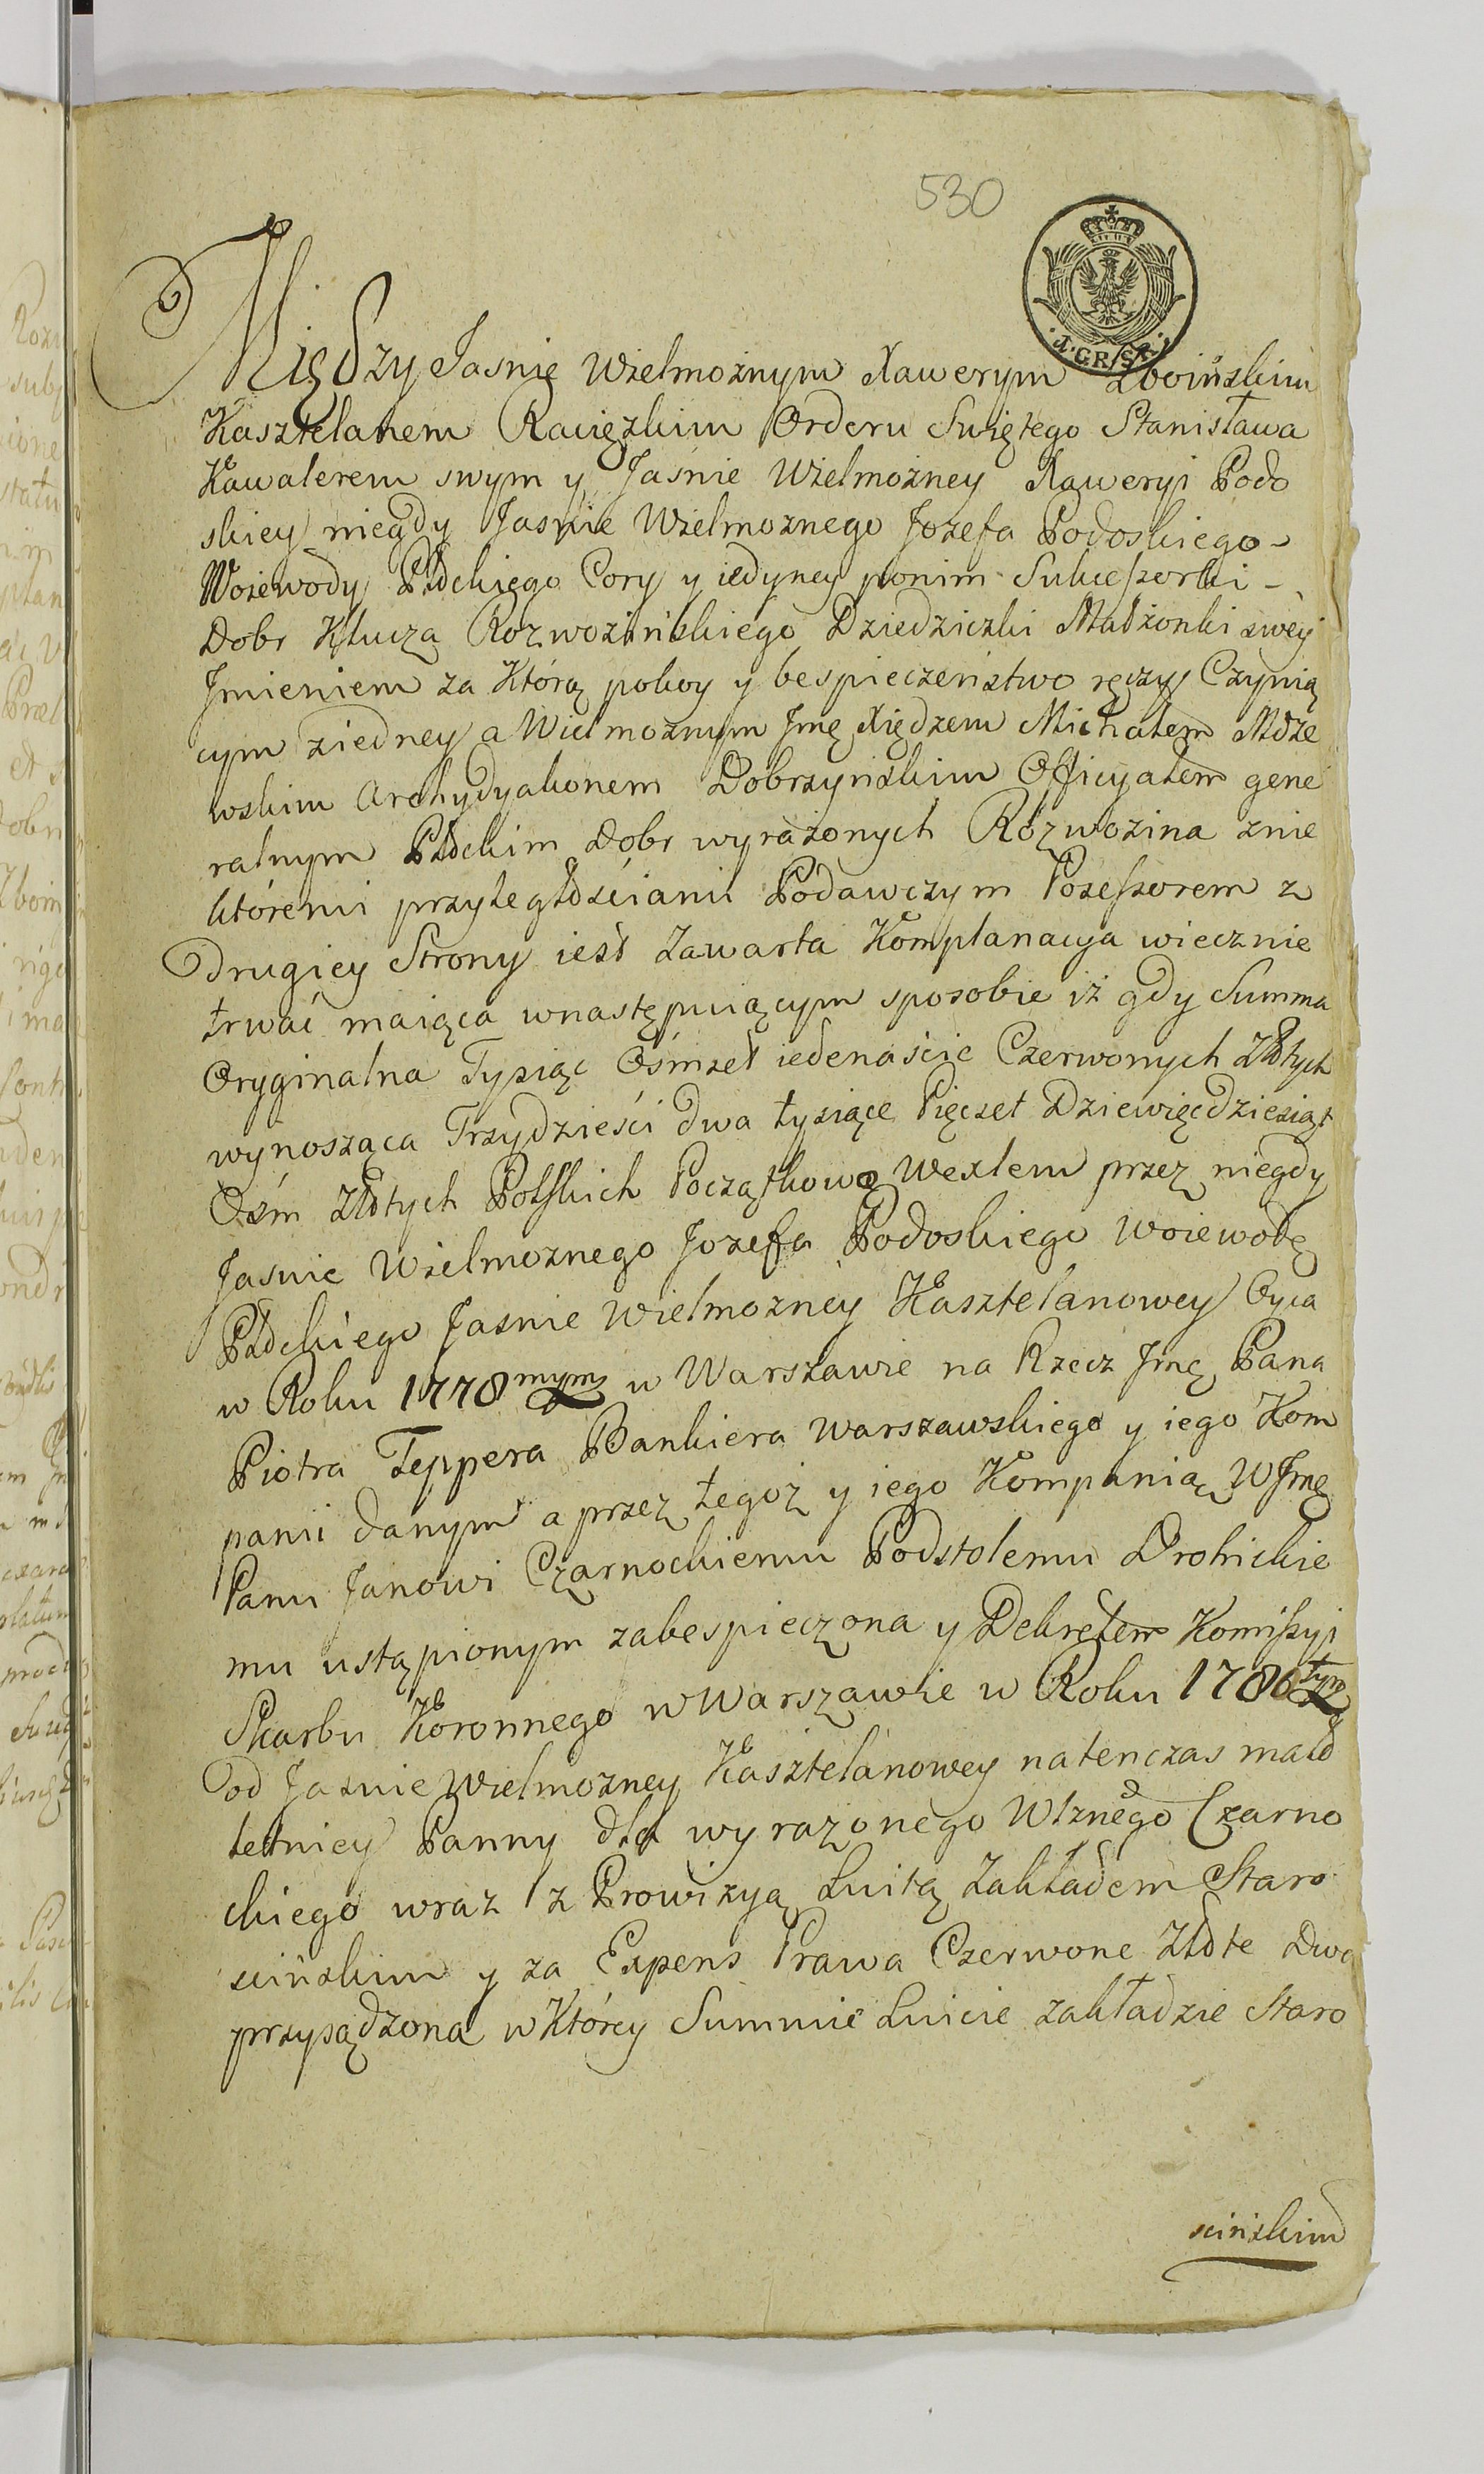 530
I.GR.SR.
Między Jasnie Wielmożnym Xawerym Zboińskim
Kasztelanem Raciązkim Orderu Swiętego Stanisława
Kawalerem swym y Jaśnie Wielmożney Xaweryi Podo
skiey niegdy Jasnie Wielmoznego Jozefa Podoskiego
Woiewody Płdckiego Cory y iedyney ponim Sukceszorki
Dobr Klucza Rozwozińskiego Dziedziczki Małżonki swey
Jmieniem za Którą pokoy y bespieczeństwo ręczy Czynią
cym ziedney a Wielmożnym Jmę Xiędzem Michałem Mdze
wskim Archydyakonem Dobrzyńskim Officyałem gene
ralnym Płdckim Dobr wyrażonych Rozwozina znie
któremi przyległościami Podawczym Poseszorem z
Drugiey Strony iest Zawarta Komplanacya wiecznie
trwać maiąca wnastępuiącym sposobie iż gdy Summa
Oryginalna Tysiąc Ośmset iedenaście Czerwonych Złotych
wynosząca Trzydzieści dwa tysiące Pięcset Dziewięcdziesiąt
Ośm Złotych Polskich Początkowo Wexlem przez niegdy
Jasnie Wielmoznego Jozefa Podoskiego Woiewodę
Płdckiego Jasnie Wielmożney Kasztelanowey Oyca
w Roku 1778mym w Warszawie na Rzecz Jmę Pana
Piotra Teppera Bankiera Warszawskiego y iego Kom
panii danym a przez tegoż y iego Kompanią WJmę
Panu Janowi Czarnockiemu Podstolemu Drohickie
mu ustąpionym zabespieczona y Dekretem Komiszyi
Skarbu Koronnego w Warszawie w Roku 1786tym
od Jasnie Wielmozney Kasztelanowey natenczas mało
letniey Panny dla wyrażonego Wlznego Czarno
ckiego wraz z Prowizyą Luitą Zakładem Staro
scińskim y za Expens Prawa Czerwone Złote Dwa
przysądzona w Którey Summie Luicie zakładzie Staro
scińskim